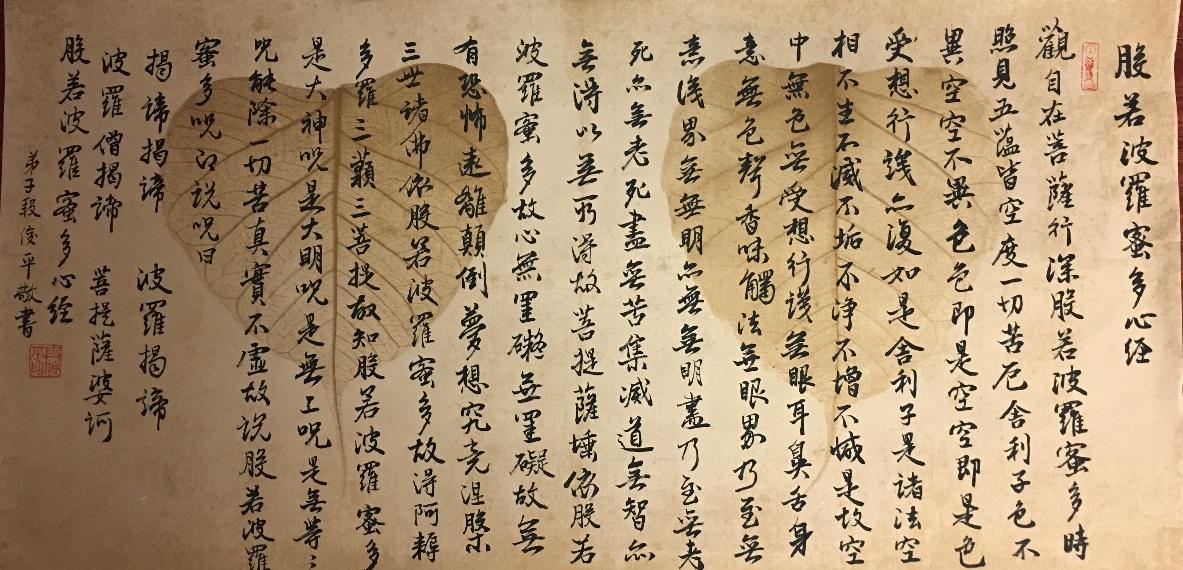 般若波羅蜜多心经
觀自在菩薩行深般若波羅蜜多時
照見五蕴皆空度一切苦厄舍利子色不
異空空不異色色即是空空即是色
受想行識亦復如是舍利子是諸法空
相不生不滅不垢不浄不增不減是故空
中無色無受想行識無眼耳鼻舌身
意無色聲香味觸法無眼界乃至無
意識界無無明亦無無明盡乃至無老
死亦無老死盡無苦集滅道無智亦
無得以無所得故菩提薩埵依般若
波羅蜜多故心無罣礙無罣礙故無
有恐怖遠離顛倒夢想究竟涅槃
三世諸佛依般若波羅蜜多故得阿耨
多羅三藐三菩提故知般若波羅蜜多
是大神呪是大明呪是無上呪是無等〻
呪能除一切苦真實不虛故説般若波羅
蜜多呪即説呪曰
揭諦揭諦 波羅揭諦
波羅僧揭諦 菩提薩婆訶
般若波羅蜜多心经
弟子段俊平敬書